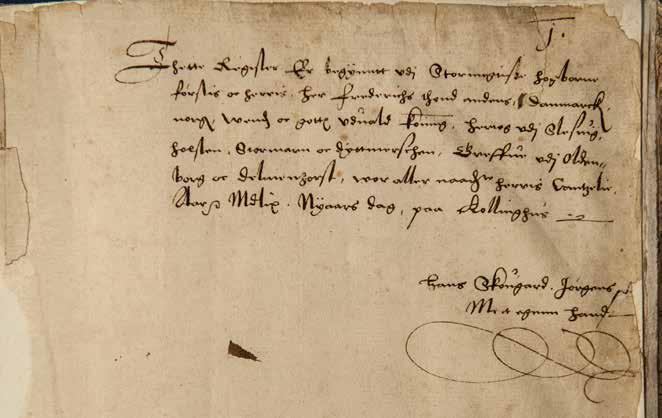 j.
Thette Register Er begÿnntt vdj Stormegtiste høgborne
førstis oc herris, her Frederichs thend andens, Danmarck
norg, Wend oc gott vduald Konning, hertog vdj Slesuig,
holsten, Stormarn oc dyttmerschen, Greffue vdj Olden-
borg oc delmenhorst, wor aller naadste herris Cantzelie.
Aar Mdlix. Nÿaars dag, paa Kollinghus
hans Skougard. Jørgens
Met egenn hand